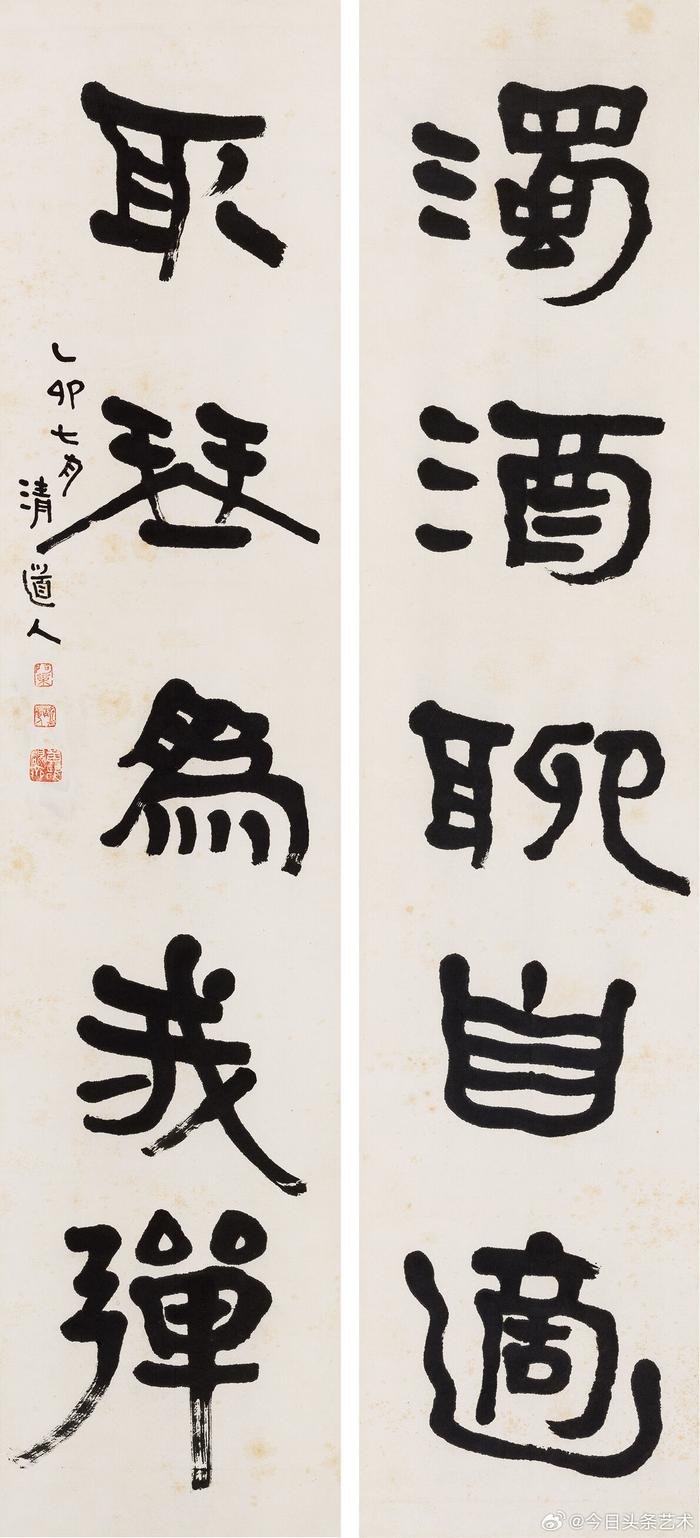 濁酒聊自適
取琴為我彈
乙卯七月
清道人
@今日头条艺术